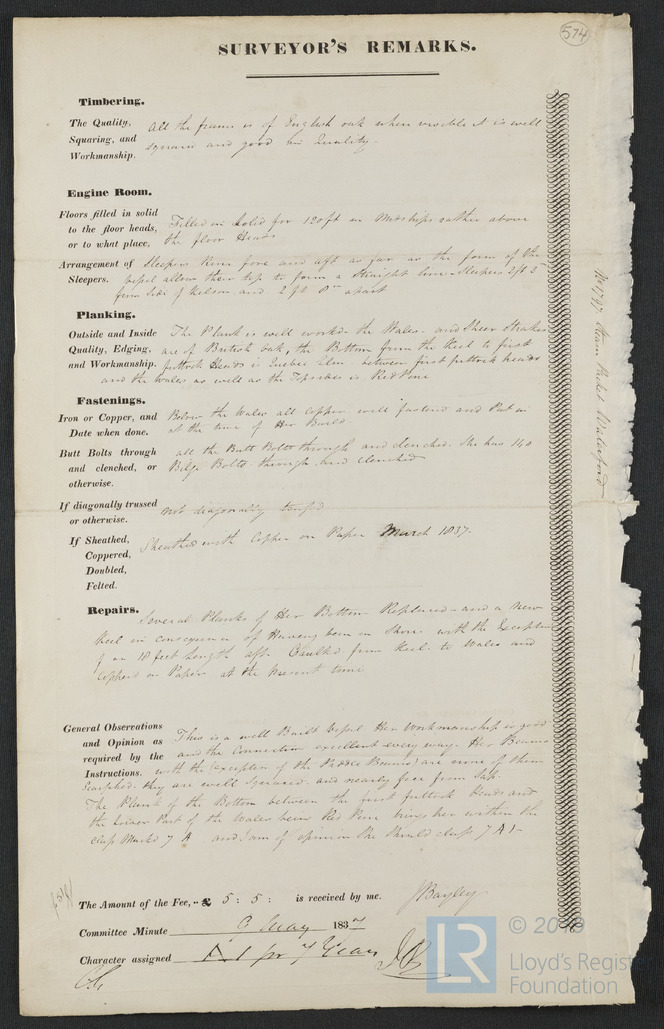 574
SURVEYOR'S REMARKS.
Timbering.
The Quality, Squaring, and Workmanship.
All the frame is of English oak where visible it is well
square and good in Quality -
Engine Room.
Floors filled in solid to the floor heads, or to what place.
Filled in Solid for 120 ft in Midships rather above
the floor Heads
Arrangement of Sleepers.
Sleepers Run fore and aft as far as the form of the
Vessel allow their top to form a Straight line - Sleepers 2 ft 3
from Side of Kelson and 2 ft 8 in apart
Planking.
Outside and Inside Quality, Edging, and Workmanship.
The Plank is well worked - the Wales and Sheer Strakes
are of British oak, the Bottom from the Keel to first
futtock Heads is Quebec Elm between first futtock heads
and the Wales as well as the Topsides is Red Pine
Fastenings.
Iron or Copper, and Date when done.
Below the Wales all Copper well fastened and Put in
at the time of Her Build
Butt Bolts through and clenched, or otherwise.
all the Butt Bolts through and clenched. She has 140
Bilge Bolts through and clenched
If diagonally trussed or otherwise.
not diagonally
If Sheathed, Coppered, Doubled, Felted.
Sheathed with Copper on Paper March 1837.
Repairs.
Several Planks of Her Bottom Replaced - and a New
Keel in consequence of Having been on Shore with the Exception
of an 18 feet Length aft. Caulked from Keel to Wales and
Coppered on Paper at the present time
General Observations and Opinion as required by the Instructions.
This is a well Built Vessel Her Workmanship is good
and the Connection excellent every way. Her Beams
with the Exception of the Paddle Beams are none of them
Scarphed. they are well Squared and nearly free from Sap.
The Plank of the Bottom between the first futtock Heads and
the Lower Part of the Wales being Red Pine brings her within the
class Marked 7 A and I am of opinion She Should class 7 A 1 -
The Amount of the Fee, £ 5 : 5 : is received by me.
J Bayley
Committee Minute 9 May 1837
Character assigned A 1 for 7 Years
No 1797. Steam Packet Waterford
© 20
LR
Lloyd's Regist
Foundation